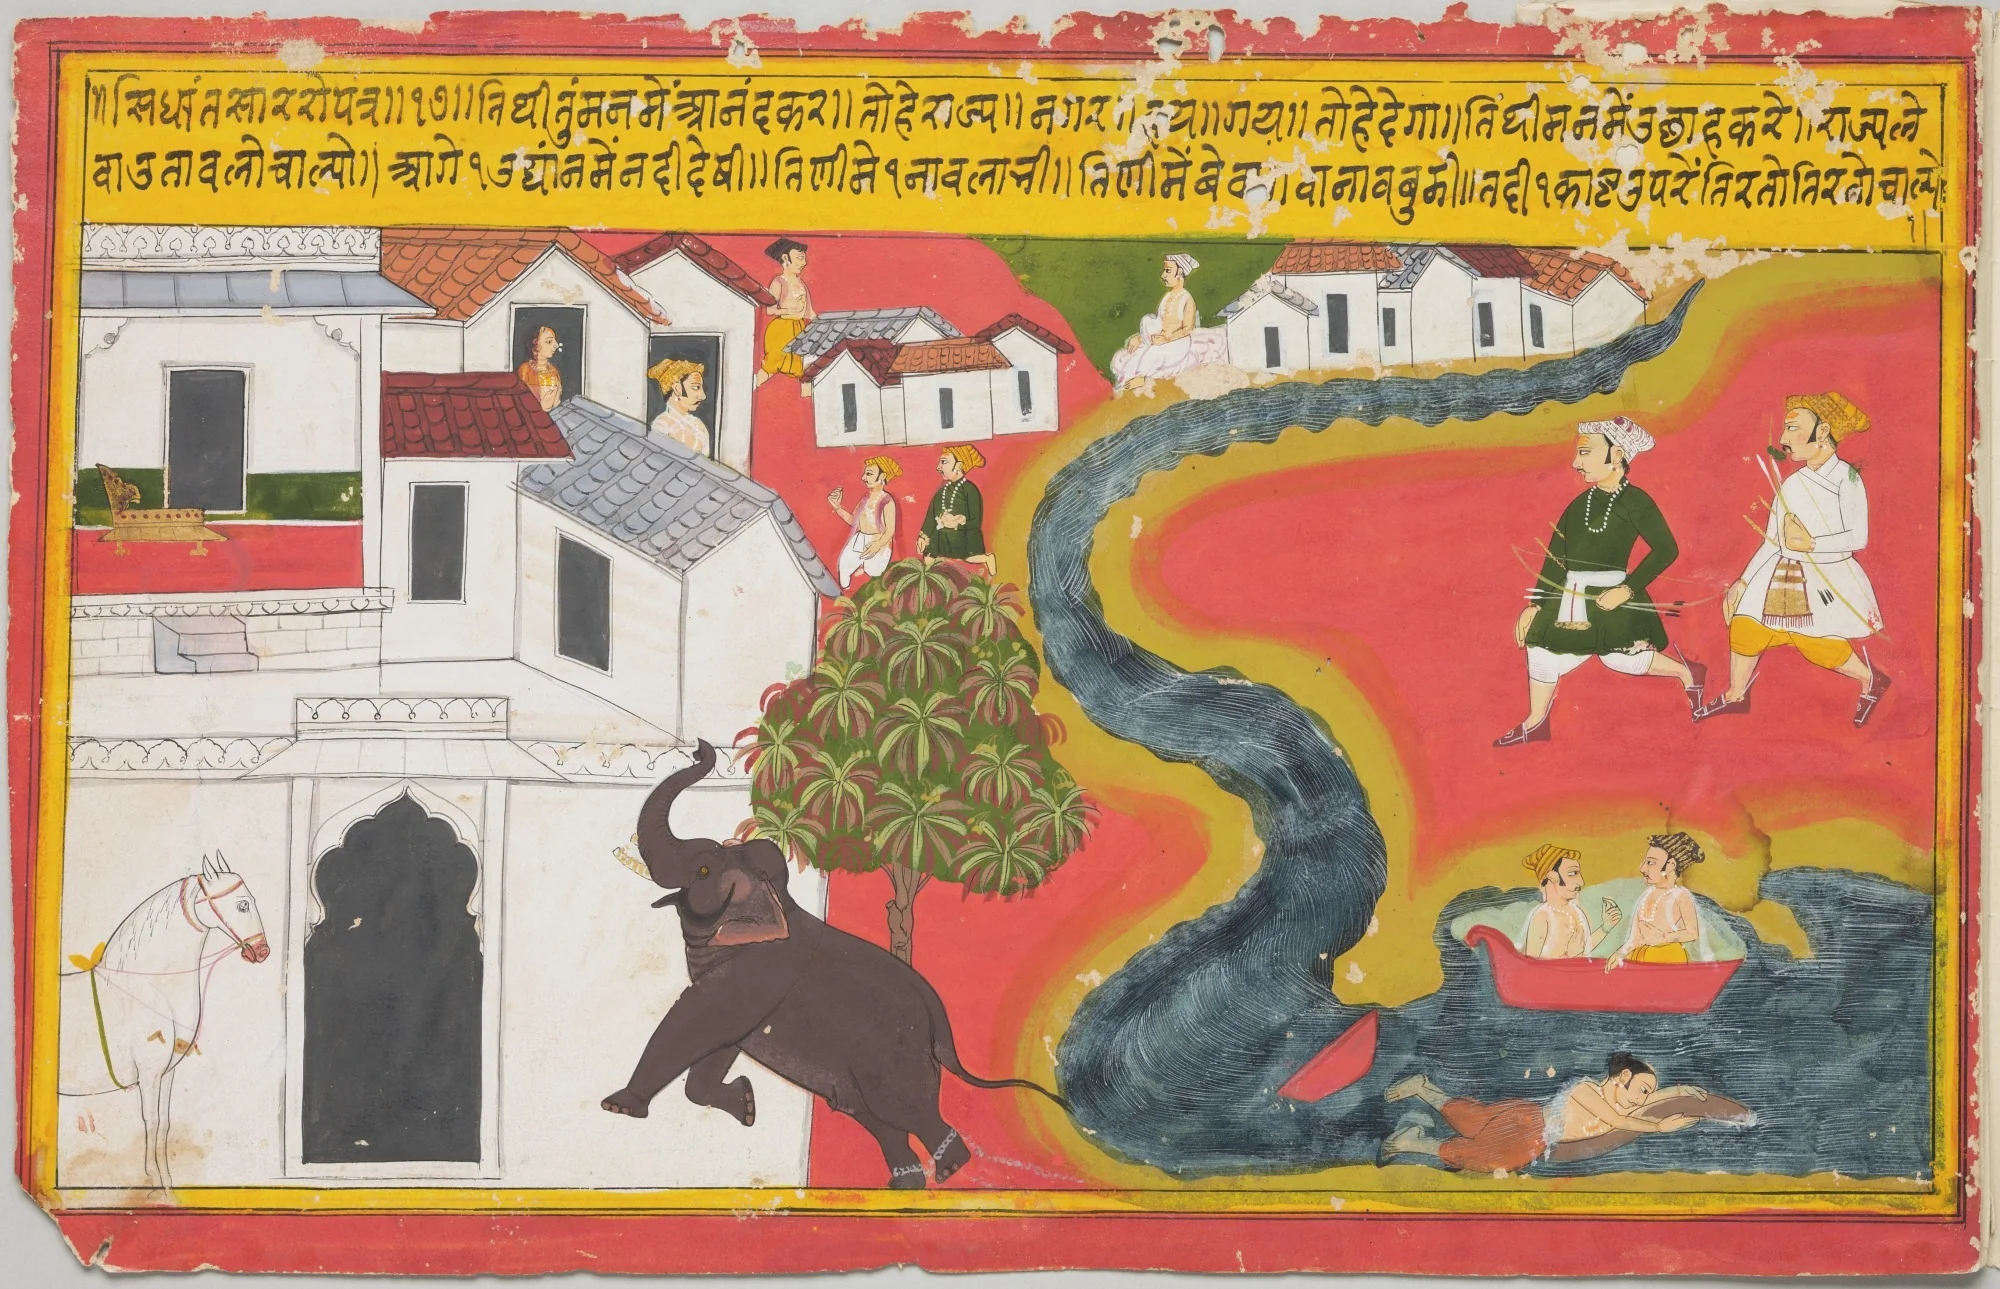 ॥सिधांतसाररोपत्र॥१७॥तिथीतुंमनमेंआनंदकर॥तोहेराज्य॥नगर॥हय॥गय॥तोहेदेगा॥तिथीमनमेंउछाहकरे॥राज्यले
वाउतावलोचाल्यो॥आगे१उद्यांनमेंनदीदेषी॥तिणीमे१नावलाची॥तिणीमेंबे॥वानावबुडी॥तदी१काष्टउपरेंतिरतोतिरतोचाल्यो
॥